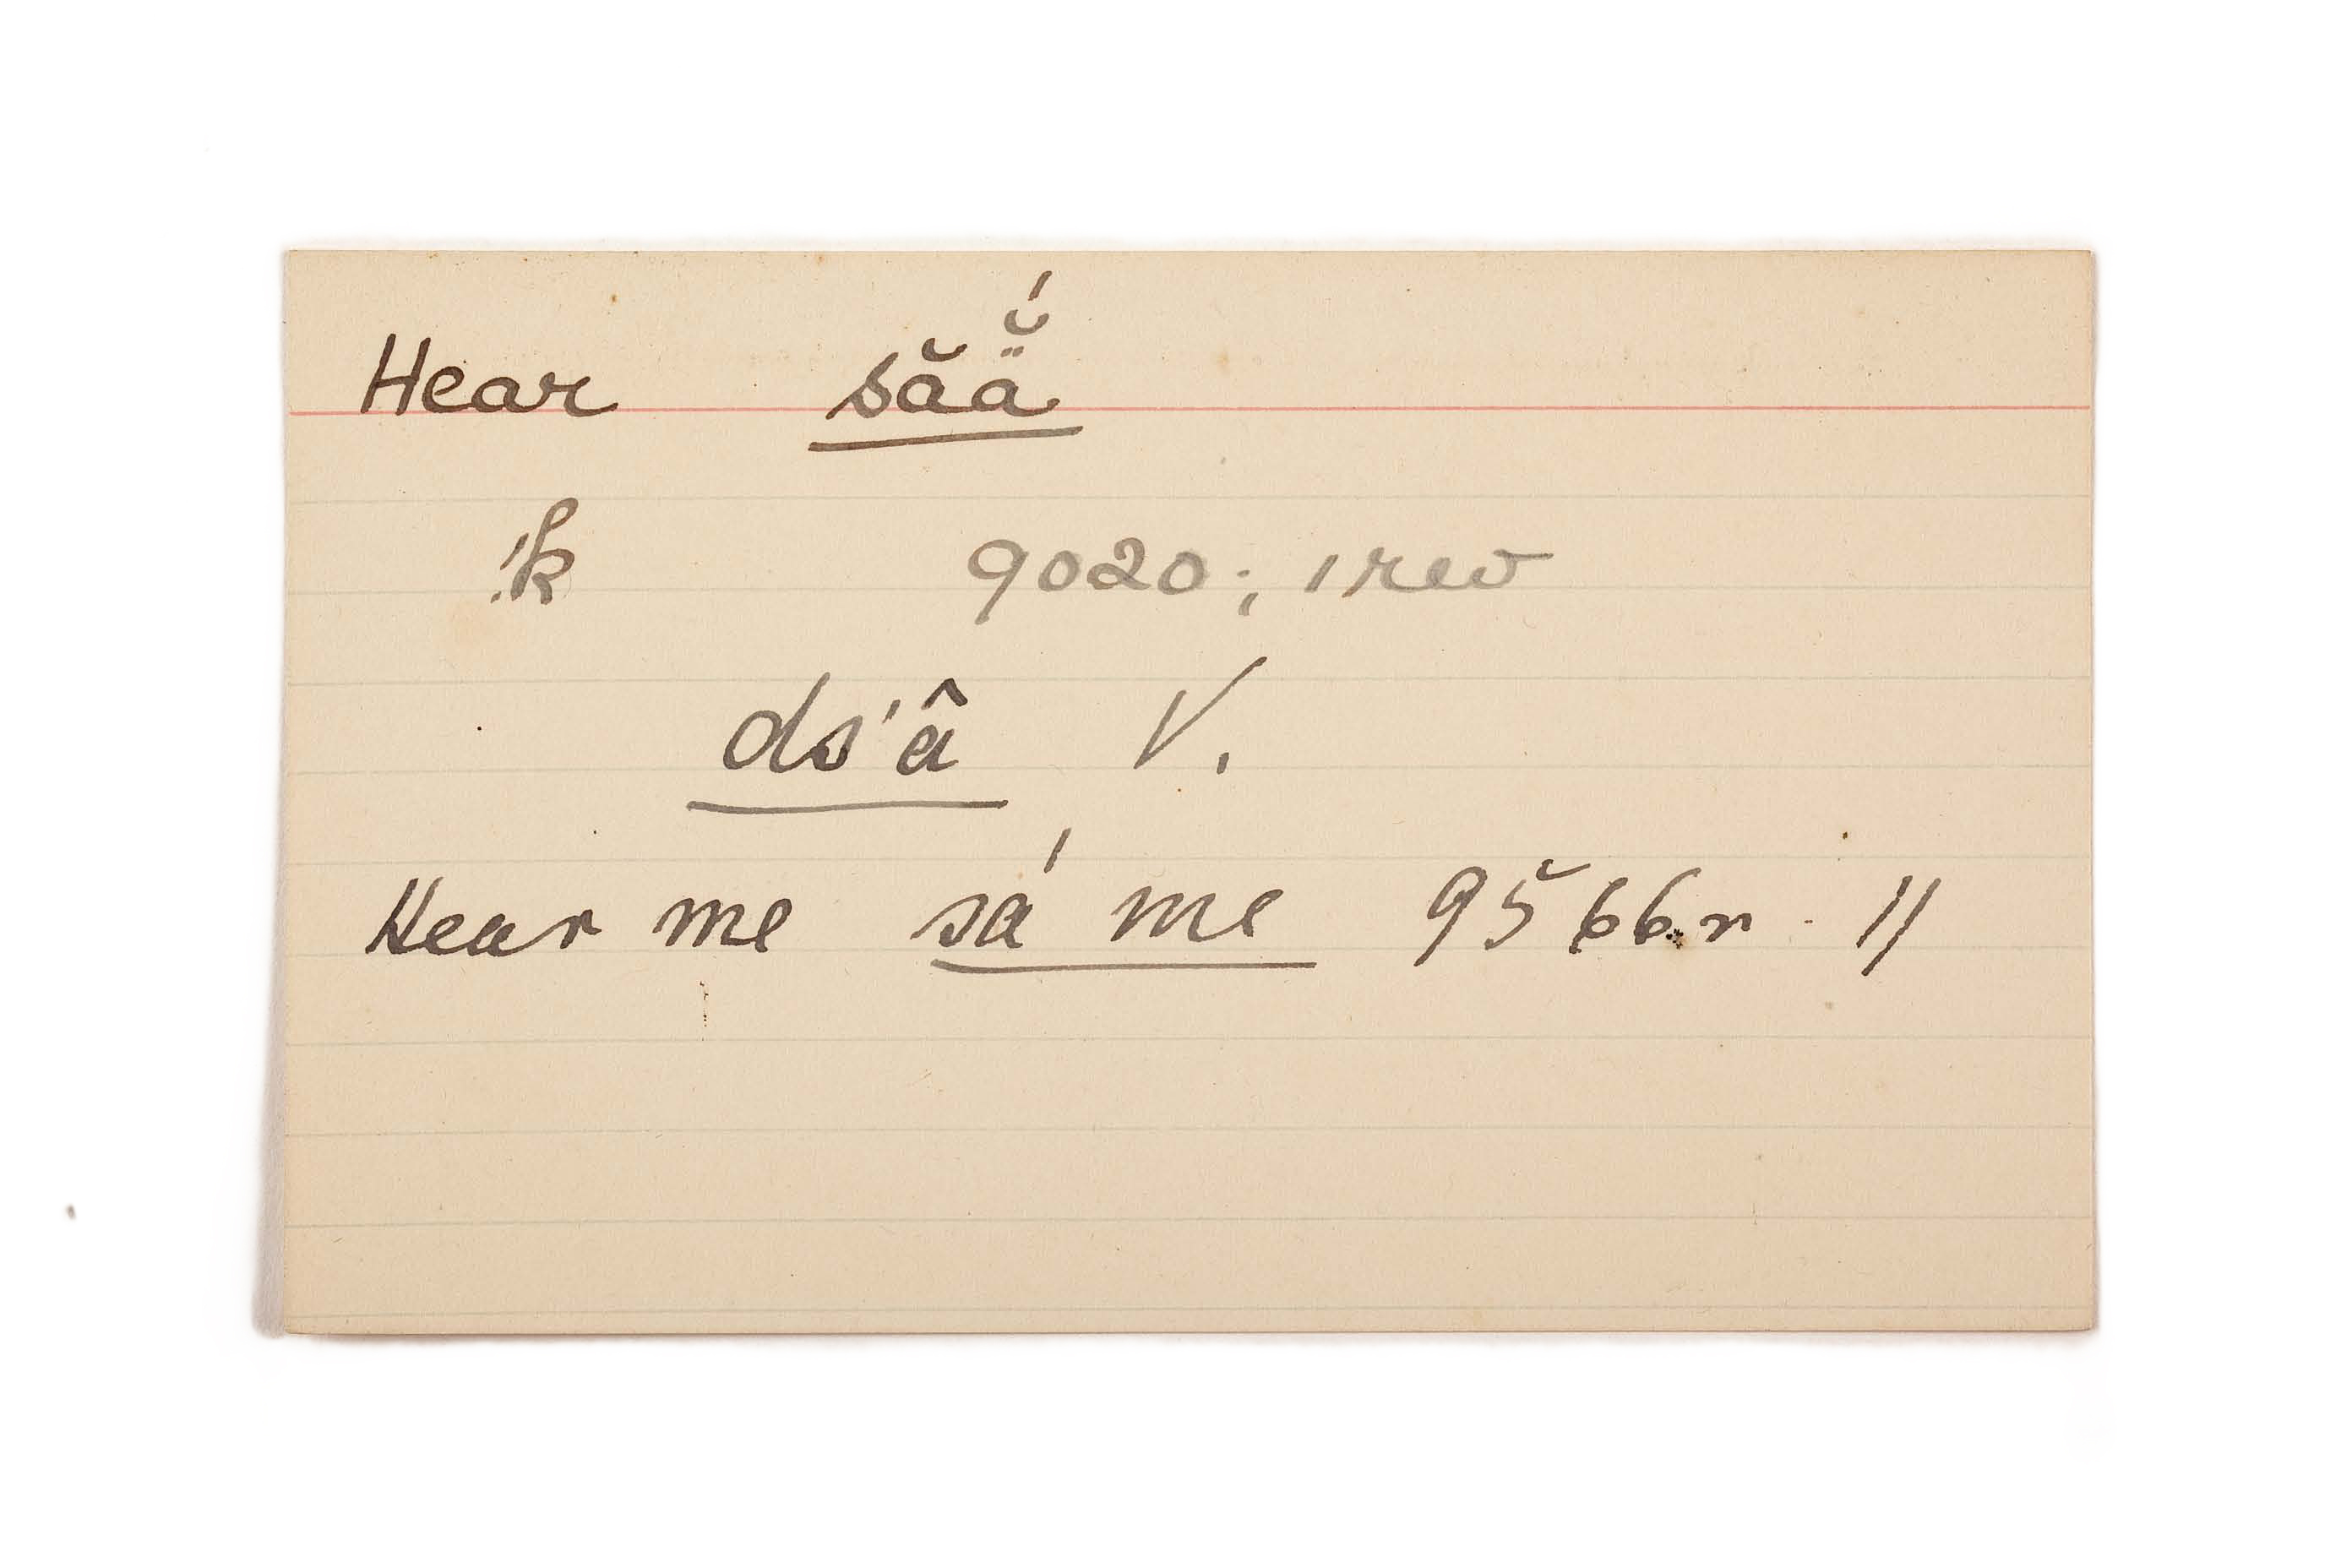 Hear săä̆́
!k 9020; 1 rev
ds'â V.
Hear me sá me 9566.r. 11